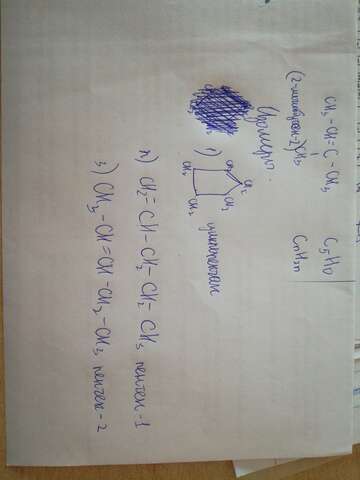 CH3-CH=C-CH3
CH3
(2-метилбутен-2)
C5H10
CnH2n
Изомеры.
1)
CH2
CH2
CH2
CH2
CH2
циклопентан
2) CH2=CH-CH2-CH2-CH3 пентен-1
3) CH3-CH=CH-CH2-CH3 пентен-2